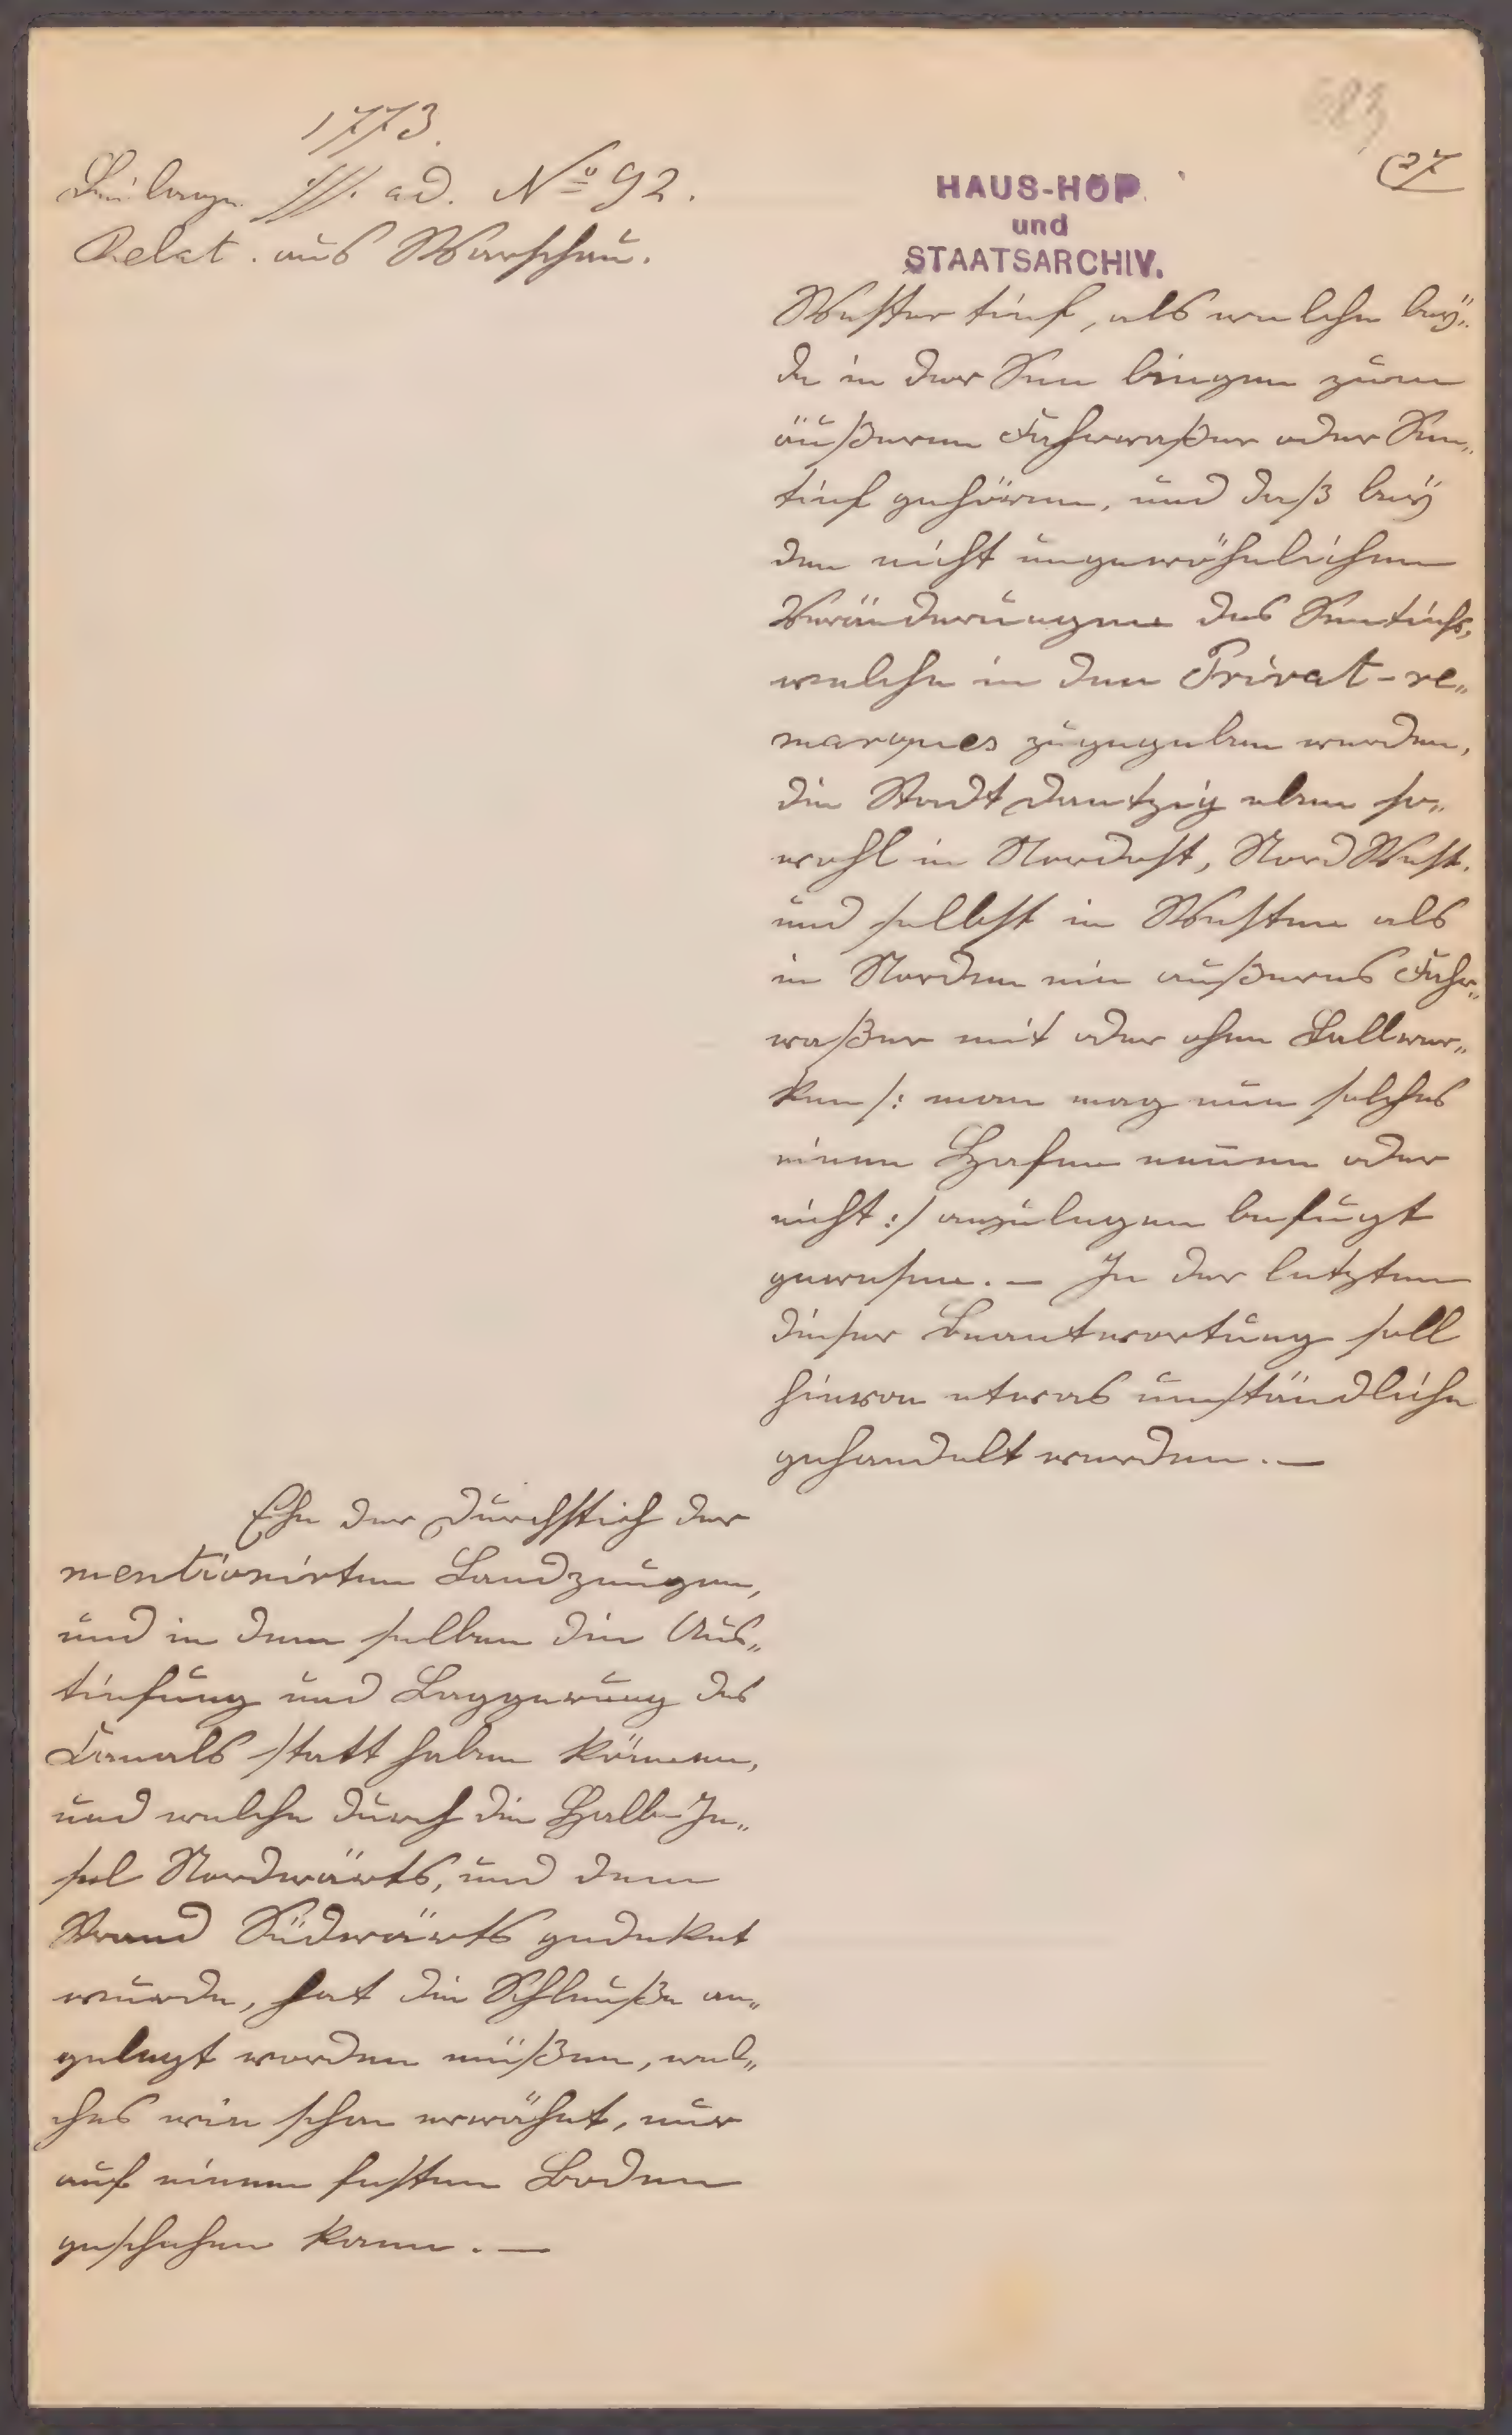 1773.
Beilage ad. No 92.
Relat. aus Warschau.
683
27
HAUS-HOF
und
STAATSARCHIV.
Wester tief, als welche bey„
de in der See liegen zum
äußeren Fahrwaßer oder See„
tief gehören, und daß bey
den nicht ungewöhnlichen
Veränderungen des Seetiefs,
welche in den Privat-re„
marques zugegeben werden,
die Stadt Dantzig eben so„
wohl in Nordost, Nord West.
und selbst in Westen als
in Norden ein außeres Fahr„
waßer mit oder ohne Bollwer„
ken /: man mag nun solches
einen Hafen nennen oder
nicht :/ anzulegen befugt
gewesen. — In der letzten
dieser Beantwortung soll
hievon etwas umständliche
gehandelt werden. —
Ehe der Durchstich der
mentionirten Landzungen,
und in dem selben die Aus„
tiefung und Baggerung des
Canals statt haben können,
und welche durch die Halb-In„
sel Nordwärts, und dem
Strand Südwärts gedeket
wurde, hat die Schleuße an„
gelegt worden müßen, wel„
ches wie schon erwähnt, nur
auf einem festen Boden
geschehen kann. —